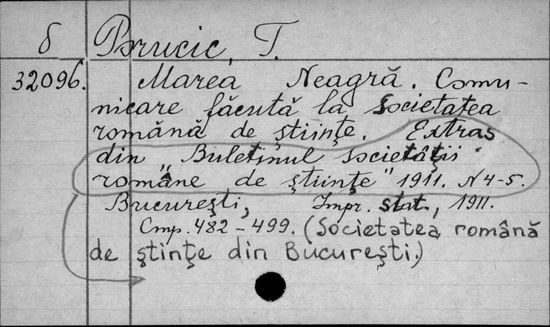 δ Porucic, T.
32096. Marea Neagră. Comu-
nicare făcută la Societatea
română de ştiinţe. Extras
din „Buletinul societăţii
române de ştiinţe" 1911. N 4-5.
Bucureşti, Impr. stat., 1911.
Cmp. 482-499. (Societatea română
de ştinţe din Bucureşti.)